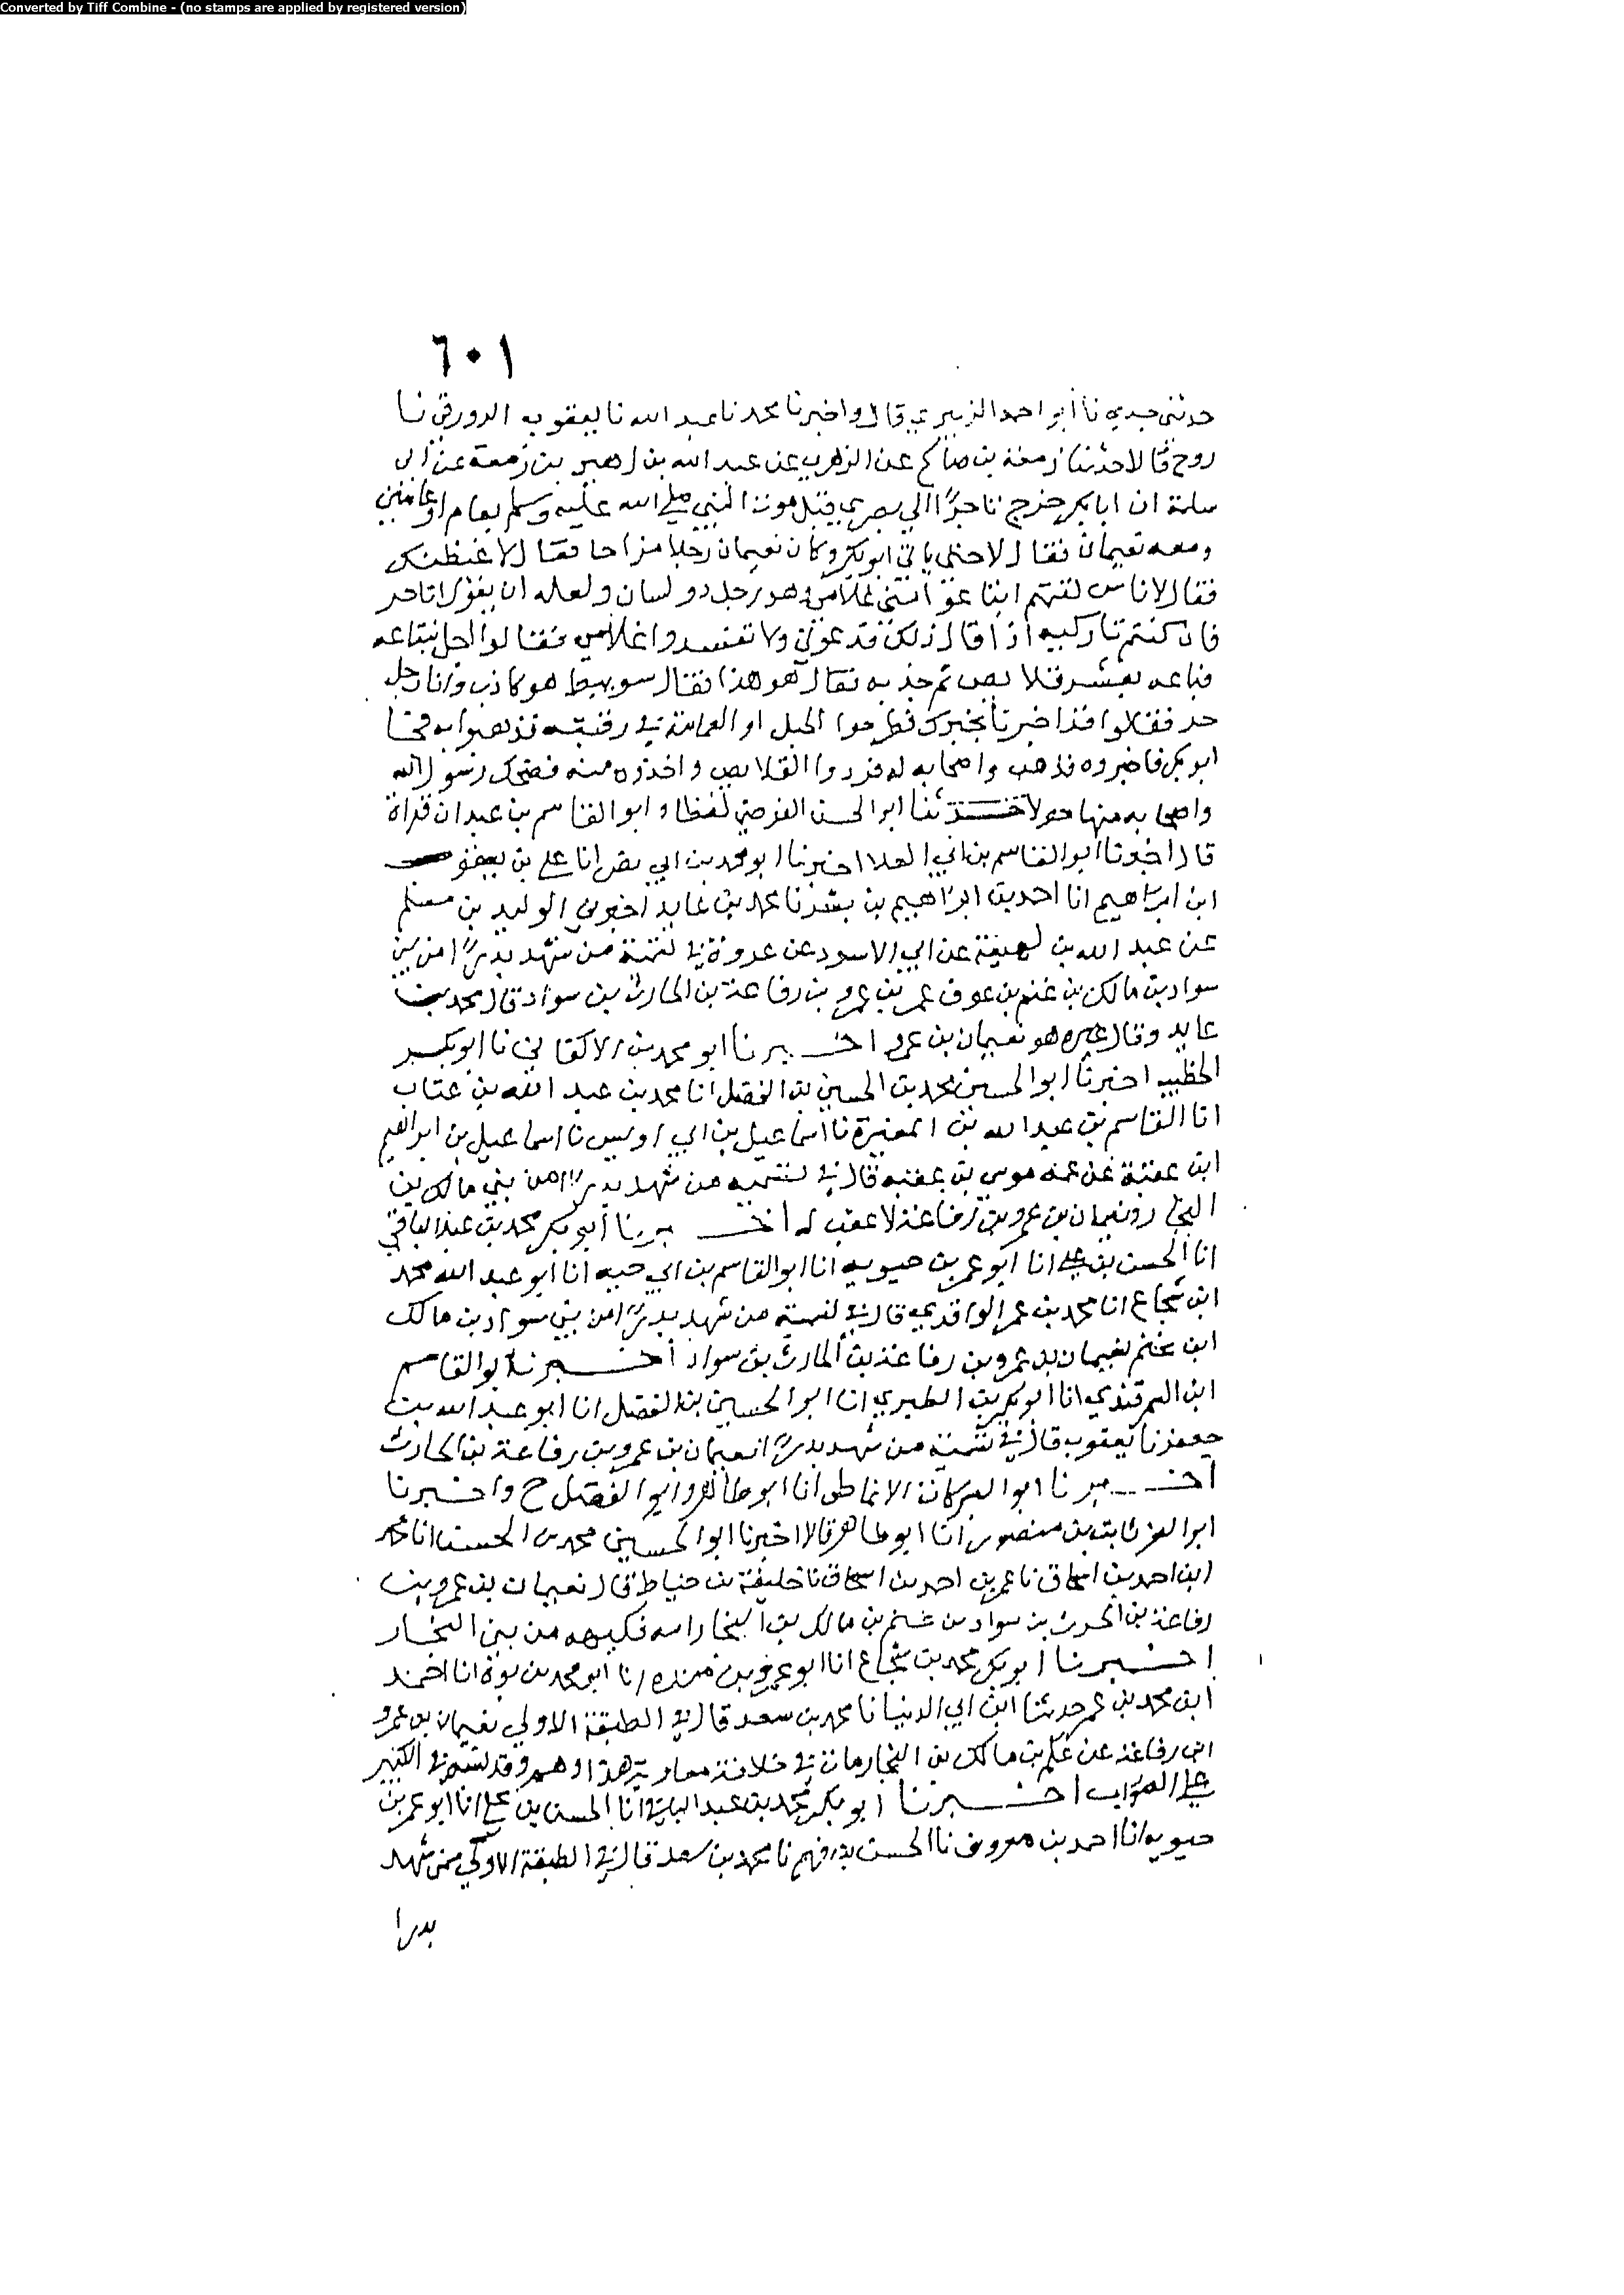 Converted by Tiff Combine - (no stamps are applied by registered version)
٦٠١
حدثني جدي نا أبو احمد الزبيري قال واخبرنا محمد نا عبد الله نا يعقوب الدورقي نا
روح قالا حدثنا زمعة بن صالح عن الزهري عن عبد الله بن زهير بن زمعة عن ابي
سلمة ان ابا بكر خرج تاجرًا الي بصري قبل موت النبي صلي الله عليه وسلم بعام او عامين
ومعه نعيمان فقال لا حتى ياتي ابو بكر وكان نعيمان رجلا مزاحا فقال لاغيظنك
فقال لاناس ابتاعوا مني غلامي وهو رجل ذو لسان ولعله ان يقول انا حر
فان كنتم تاركيه اذا قال ذلك فدعوني ولا تفسدوا غلامي فقالوا الجل نبتاعه
فباعه بعشر قلايص ثم جذبه فقال هو هذا فقال سويبط هو كاذب وانا رجل
حر فقالوا قد اخبرنا بخبرك فطرحوا الحبل او العمامة في رقبته فذهبوا به فجا
ابو بكر فاخبروه فذهب واصحابه له فردوا القلايص واخذوه منه فضحك رسول الله
واصحابه منها حولا حدثنا ابو الحسن الفرضي لفظا وابو القاسم بن عبدان قراة
قالا اخبرنا ابو القاسم بن ابي العلا اخبرنا ابو محمد بن ابي نصر انا علي بن يعقوب
ابن ابراهيم انا احمد بن ابراهيم بن بشر نا محمد بن عايد اخبرني الوليد بن مسلم
عن عبد الله بن لهيعة عن ابي الاسود عن عروة في تسمة من شهد بدرًا من بني
سواد بن مالك بن غنم بن عوف عمر بن عمرو بن رفاعة بن الحارث بن سواد قال محمد بن
عايد وقال غيره هو نعيمان بن عمرو اخبرنا ابو محمد بن الاكفاني نا ابو بكر
الخطيب اخبرنا ابو الحسين محمد بن الحسين بن الفضل انا محمد بن عبد الله بن عتاب
انا القاسم بن عبد الله بن المغيرة نا اسماعيل بن ابي اويس نا اسماعيل بن ابراهيم
ابن عقبة عن عمه موسي بن عقبه قال في تسميه من شهد بدرًا من بني مالك بن
النجار ونعيمان بن عمرو بن رفاعة لا عقب له اخبرنا أبو بكر محمد بن عبد الباقي
انا الحسن بن علي انا ابو عمر بن حيويه انا ابو القاسم بن ابي حبه انا ابو عبد الله محمد
ابن شجاع انا محمد بن عمر الواقدي قال في تسمية من شهد بدرًا من بني سواد بن مالك
ابن غنم نعيمان بن عمرو بن رفاعة بن الحارث بن سواد أخبرنا ابو القاسم
ابن السمرقندي انا ابو بكر بن الطبري انا ابو الحسين بن الفضل انا ابو عبد الله بن
جعفر نا يعقوب قال في تسمية من شهد بدرًا نعيمان بن عمرو بن رفاعة بن الحارث
اخبرنا ابو البركات الانماطي انا ابو طاهر وابو الفضل ح واخبرنا
ابو العز ثابت بن منصور انا ابو طاهر قالا اخبرنا ابو الحسين محمد بن الحسن انا محمد
ابن احمد بن اسحاق نا عمر بن احمد بن اسحاق نا خليفة بن خياط قال نعيمان بن عمرو بن
رفاعة بن الحرث بن سواد بن غنم بن مالك بن النجار امه فكيهه من بني النجار
اخبرنا ابو بكر محمد بن شجاع انا ابو عمرو بن منده انا ابو محمد بن يوة انا احمد
ابن محمد بن عمر حدثنا ابن ابي الدنيا نا محمد بن سعد قال في الطبقة الاولي نعيمان بن عمرو
ابن رفاعة عن غنم بن مالك بن النجار مات في خلافة معاوية هذا وهم وقد في الكبير
علي الصواب اخبرنا ابو بكر محمد بن عبد الباقي انا الحسن بن علي انا ابو عمر بن
حيويه انا احمد بن معروف نا الحسن بن فهم نا محمد بن سعد قال في الطبقة الاولي ممن شهد
بدرا